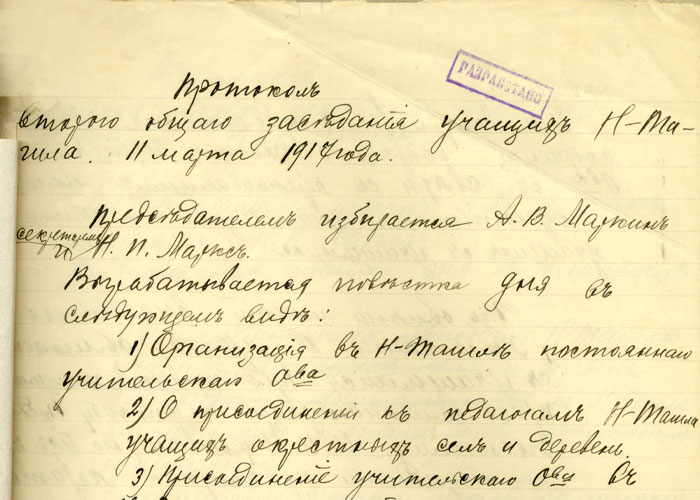 РАЗРАБОТАНО
Протоколъ
второго общаго засѣданія учащихъ Н-Та-
гила. 11 марта 1917 года.
Предсѣдателемъ избирается А. В. Маркинъ
секретаремъ
Н. П. Марксъ.
Вырабатывается повѣстка дня въ
слѣдующемъ видѣ:
1) Организація въ Н-Тагилѣ постояннаго
учительскаго О-ва
2) О присоединеніи къ педагогамъ Н-Тагила
учащихъ окрестныхъ селъ и деревень.
3) Присоединеніе учительскаго О-ва въ